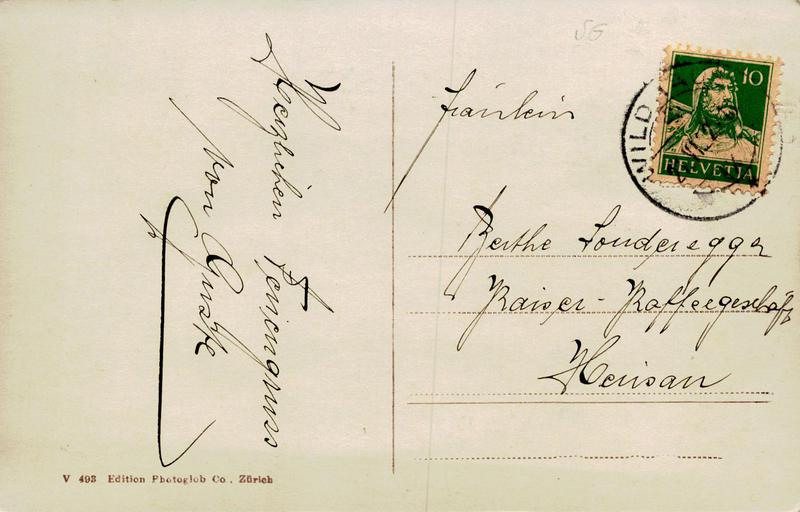 Herzlichen Feriengruss
von Gustje
Fräulein
Berthe Sonderegger
Kaiser-Kaffeegeschäft
Herisau
V 493 Edition Photoglob Co., Zürich
10
HELVETIA
WILDH